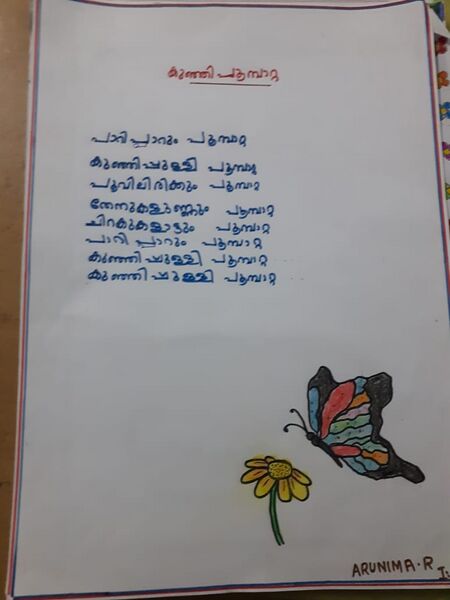 കുഞ്ഞി പൂമ്പാറ്റ
പാറി പ്പാറും പൂമ്പാറ്റ
കുഞ്ഞിപ്പുള്ളി പൂമ്പാറ്റ
പൂവിലിരിക്കും പൂമ്പാറ്റ
തേനുകളുണ്ണും പൂമ്പാറ്റ
ചിറകുകളാട്ടും പൂമ്പാറ്റ
പാറി പ്പാറും പൂമ്പാറ്റ
കുഞ്ഞി പ്പുള്ളി പൂമ്പാറ്റ
കുഞ്ഞി പ്പുള്ളി പൂമ്പാറ്റ
ARUNIMA.R